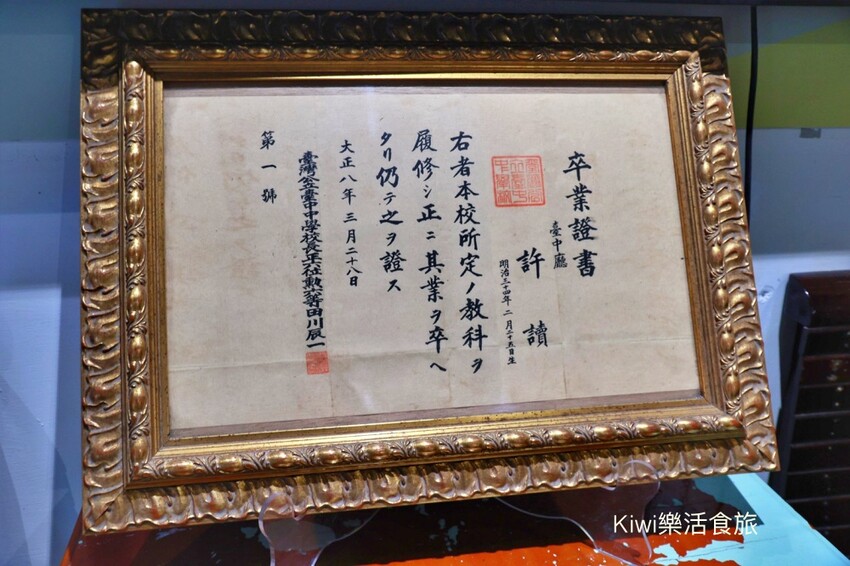 卒業證書
臺中廳
許讀
明治三十四年二月二十五日生
右者本校所定ノ教科ヲ
履修シ正ニ其業ヲ卒ヘ
タリ仍テ之ヲ證ス
大正八年三月二十八日
臺灣公立臺中中學校長正六位勲六等田川辰一
第一號
Kiwi樂活食旅